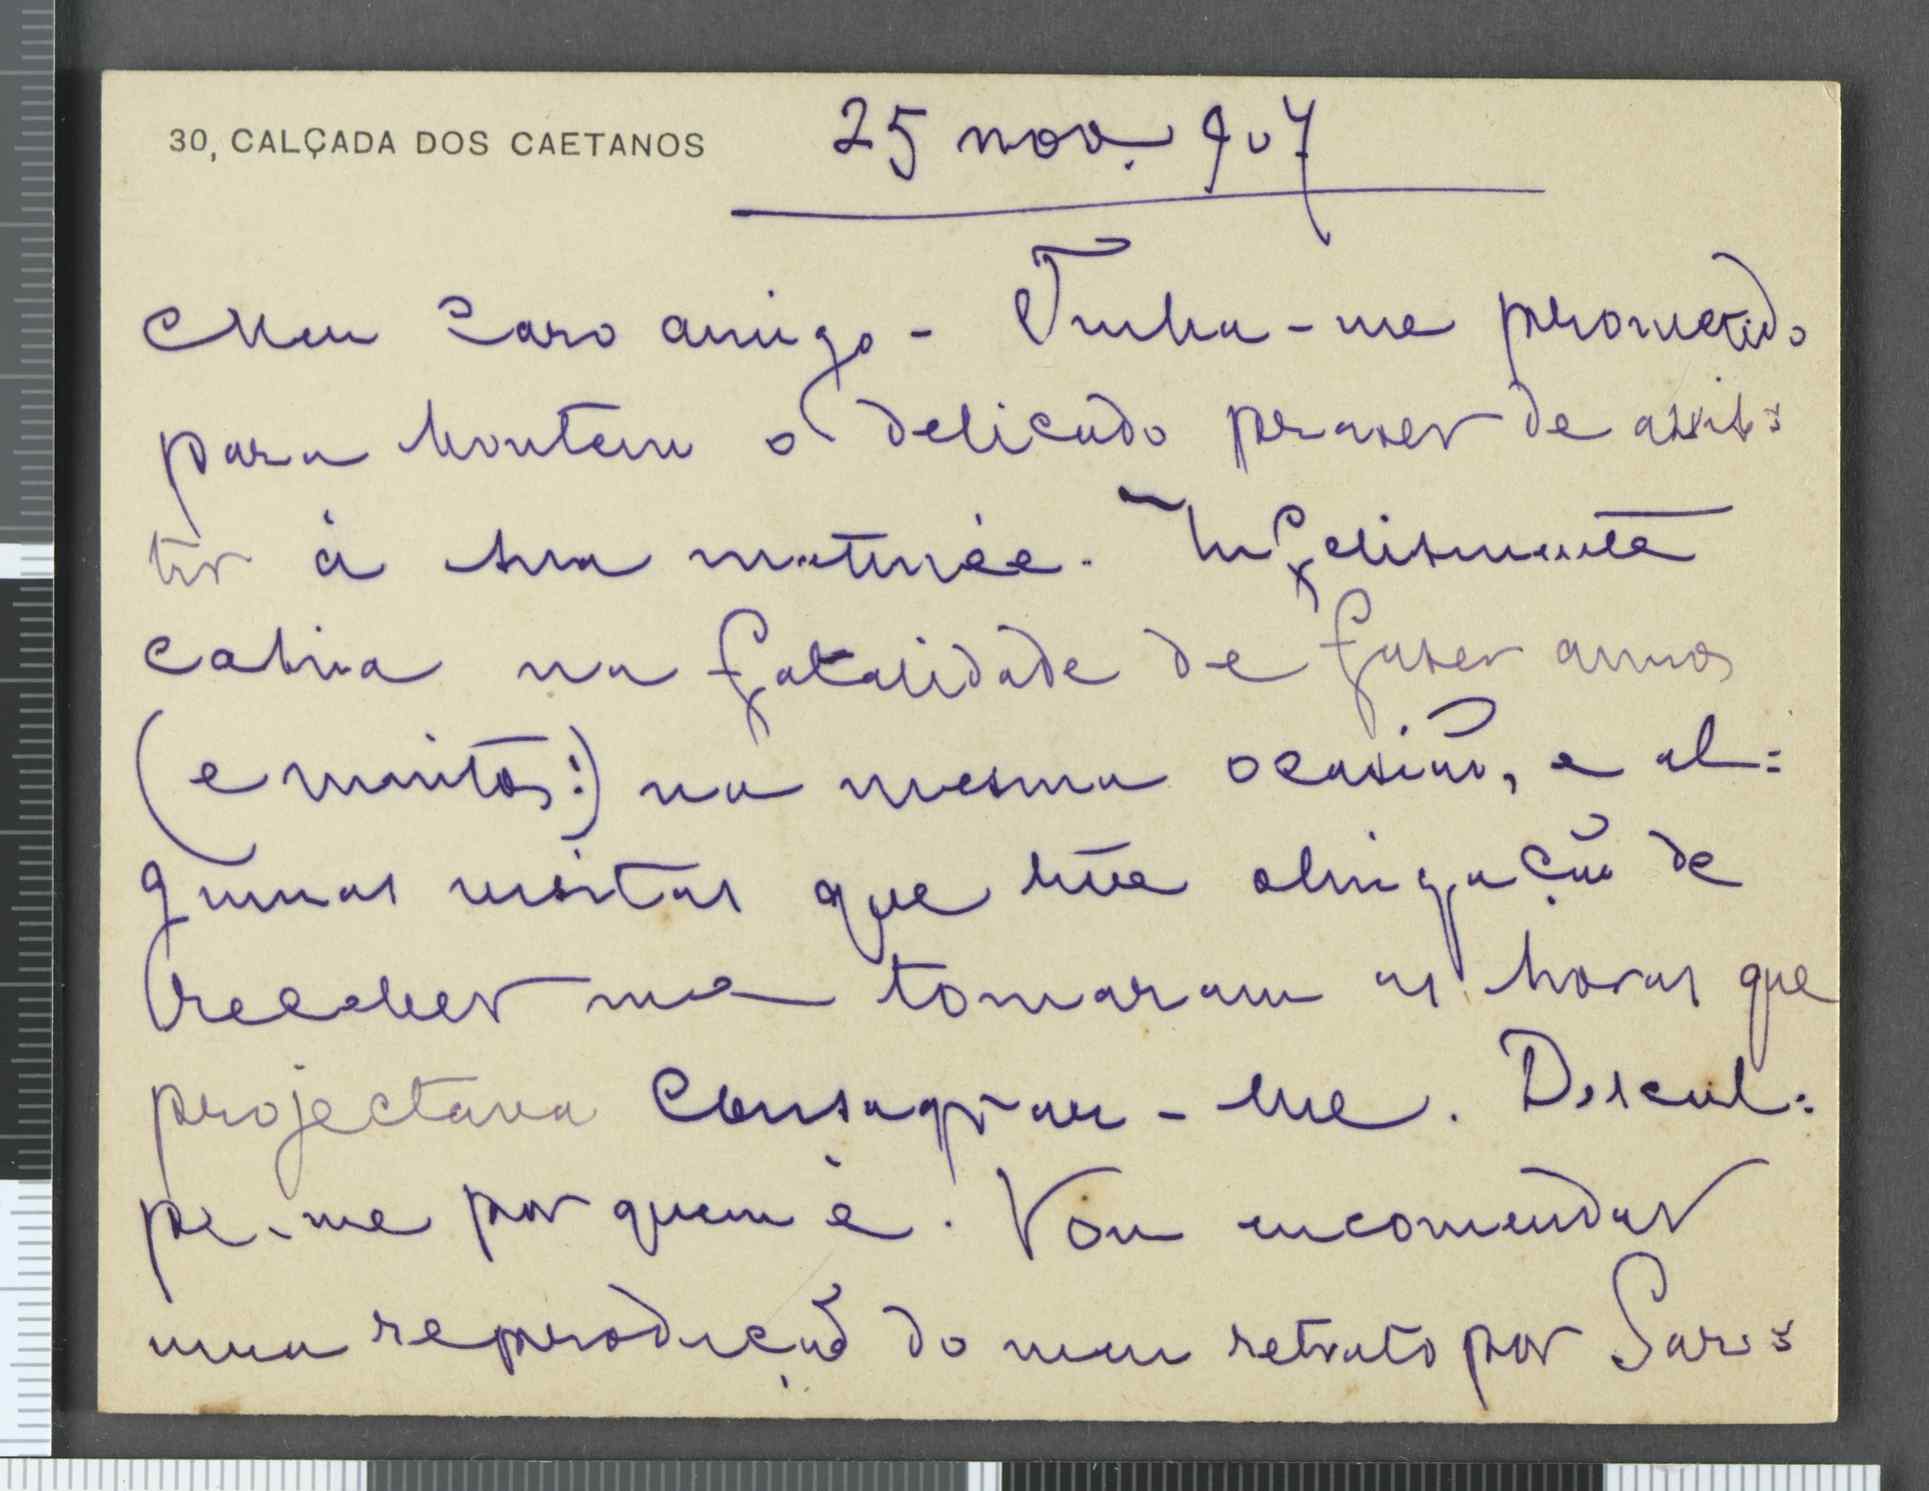 30, CALÇADA DOS CAETANOS 25 nov. 907
Meu caro amigo - Tinha-me prometido
para hontem o delicado praser de assis=
tir á sua matinée. Infelismente
cahia na fatalidade de faser annos
(e muitos!) na mesma ocasião, e al=
gumas visitas que tive obrigação de
receber me tomaram as horas que
projectava consagrar-lhe. Descul=
pe-me por quem é. Vou encomendar
uma reprodução do meu retrato por